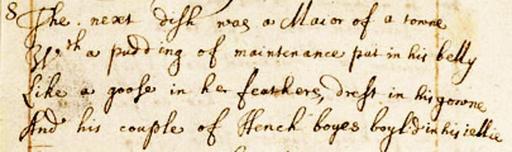 8 The next dish was a Maior of a towne
Wth a pudding of maintenance put in his belly
Like a goose in her feathers, drest in his gowne
And his couple of Hench boyes boyl'd in his iellie